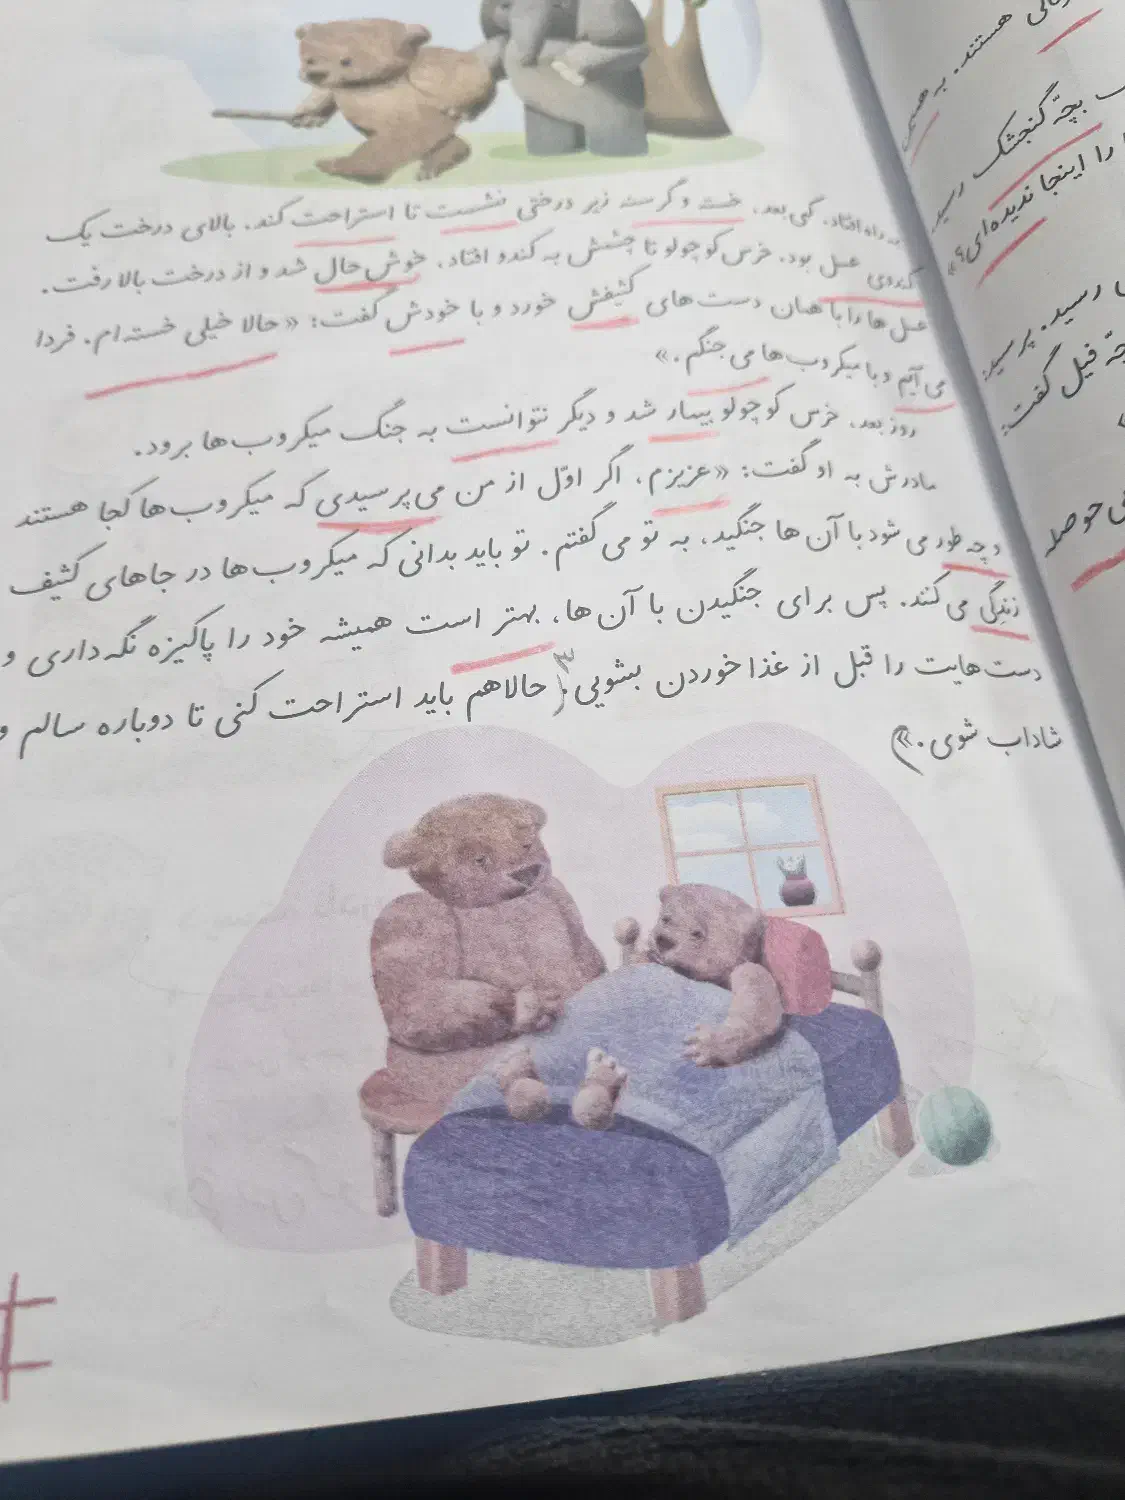 به راه افتاد. کمی بعد، خسته و گرسنه زیر درختی نشست تا استراحت کند. بالای درخت یک
کندوی عسل بود. خرس کوچولو تا چشمش به کندو افتاد، خوش حال شد و از درخت بالا رفت.
عسل ها را با همان دست های کثیفش خورد و با خودش گفت: «حالا خیلی خسته ام. فردا
می آیم و با میکروب ها می جنگم.»
روز بعد، خرس کوچولو بیمار شد و دیگر نتوانست به جنگ میکروب ها برود.
مادرش به او گفت: «عزیزم، اگر اوّل از من می پرسیدی که میکروب ها کجا هستند
و چه طور می شود با آن ها جنگید، به تو می گفتم. تو باید بدانی که میکروب ها در جاهای کثیف
زندگی می کنند. پس برای جنگیدن با آن ها، بهتر است همیشه خود را پاکیزه نگه داری و
دست هایت را قبل از غذا خوردن بشویی. حالا هم باید استراحت کنی تا دوباره سالم و
شاداب شوی.»
هستند. به
بچّه گنجشک رسید
را اینجا ندیده ای؟»
رسید. پرسید:
فیل گفت:
حوصله